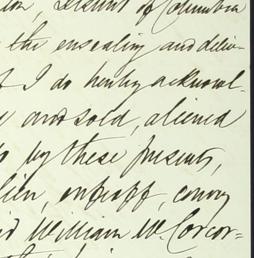 ton, District of Columbia
the ensealing and deliv-
I do hereby acknowl-
and sold, aliened
by these presents,
lien, enfeoff, convey
William W. Corcor-